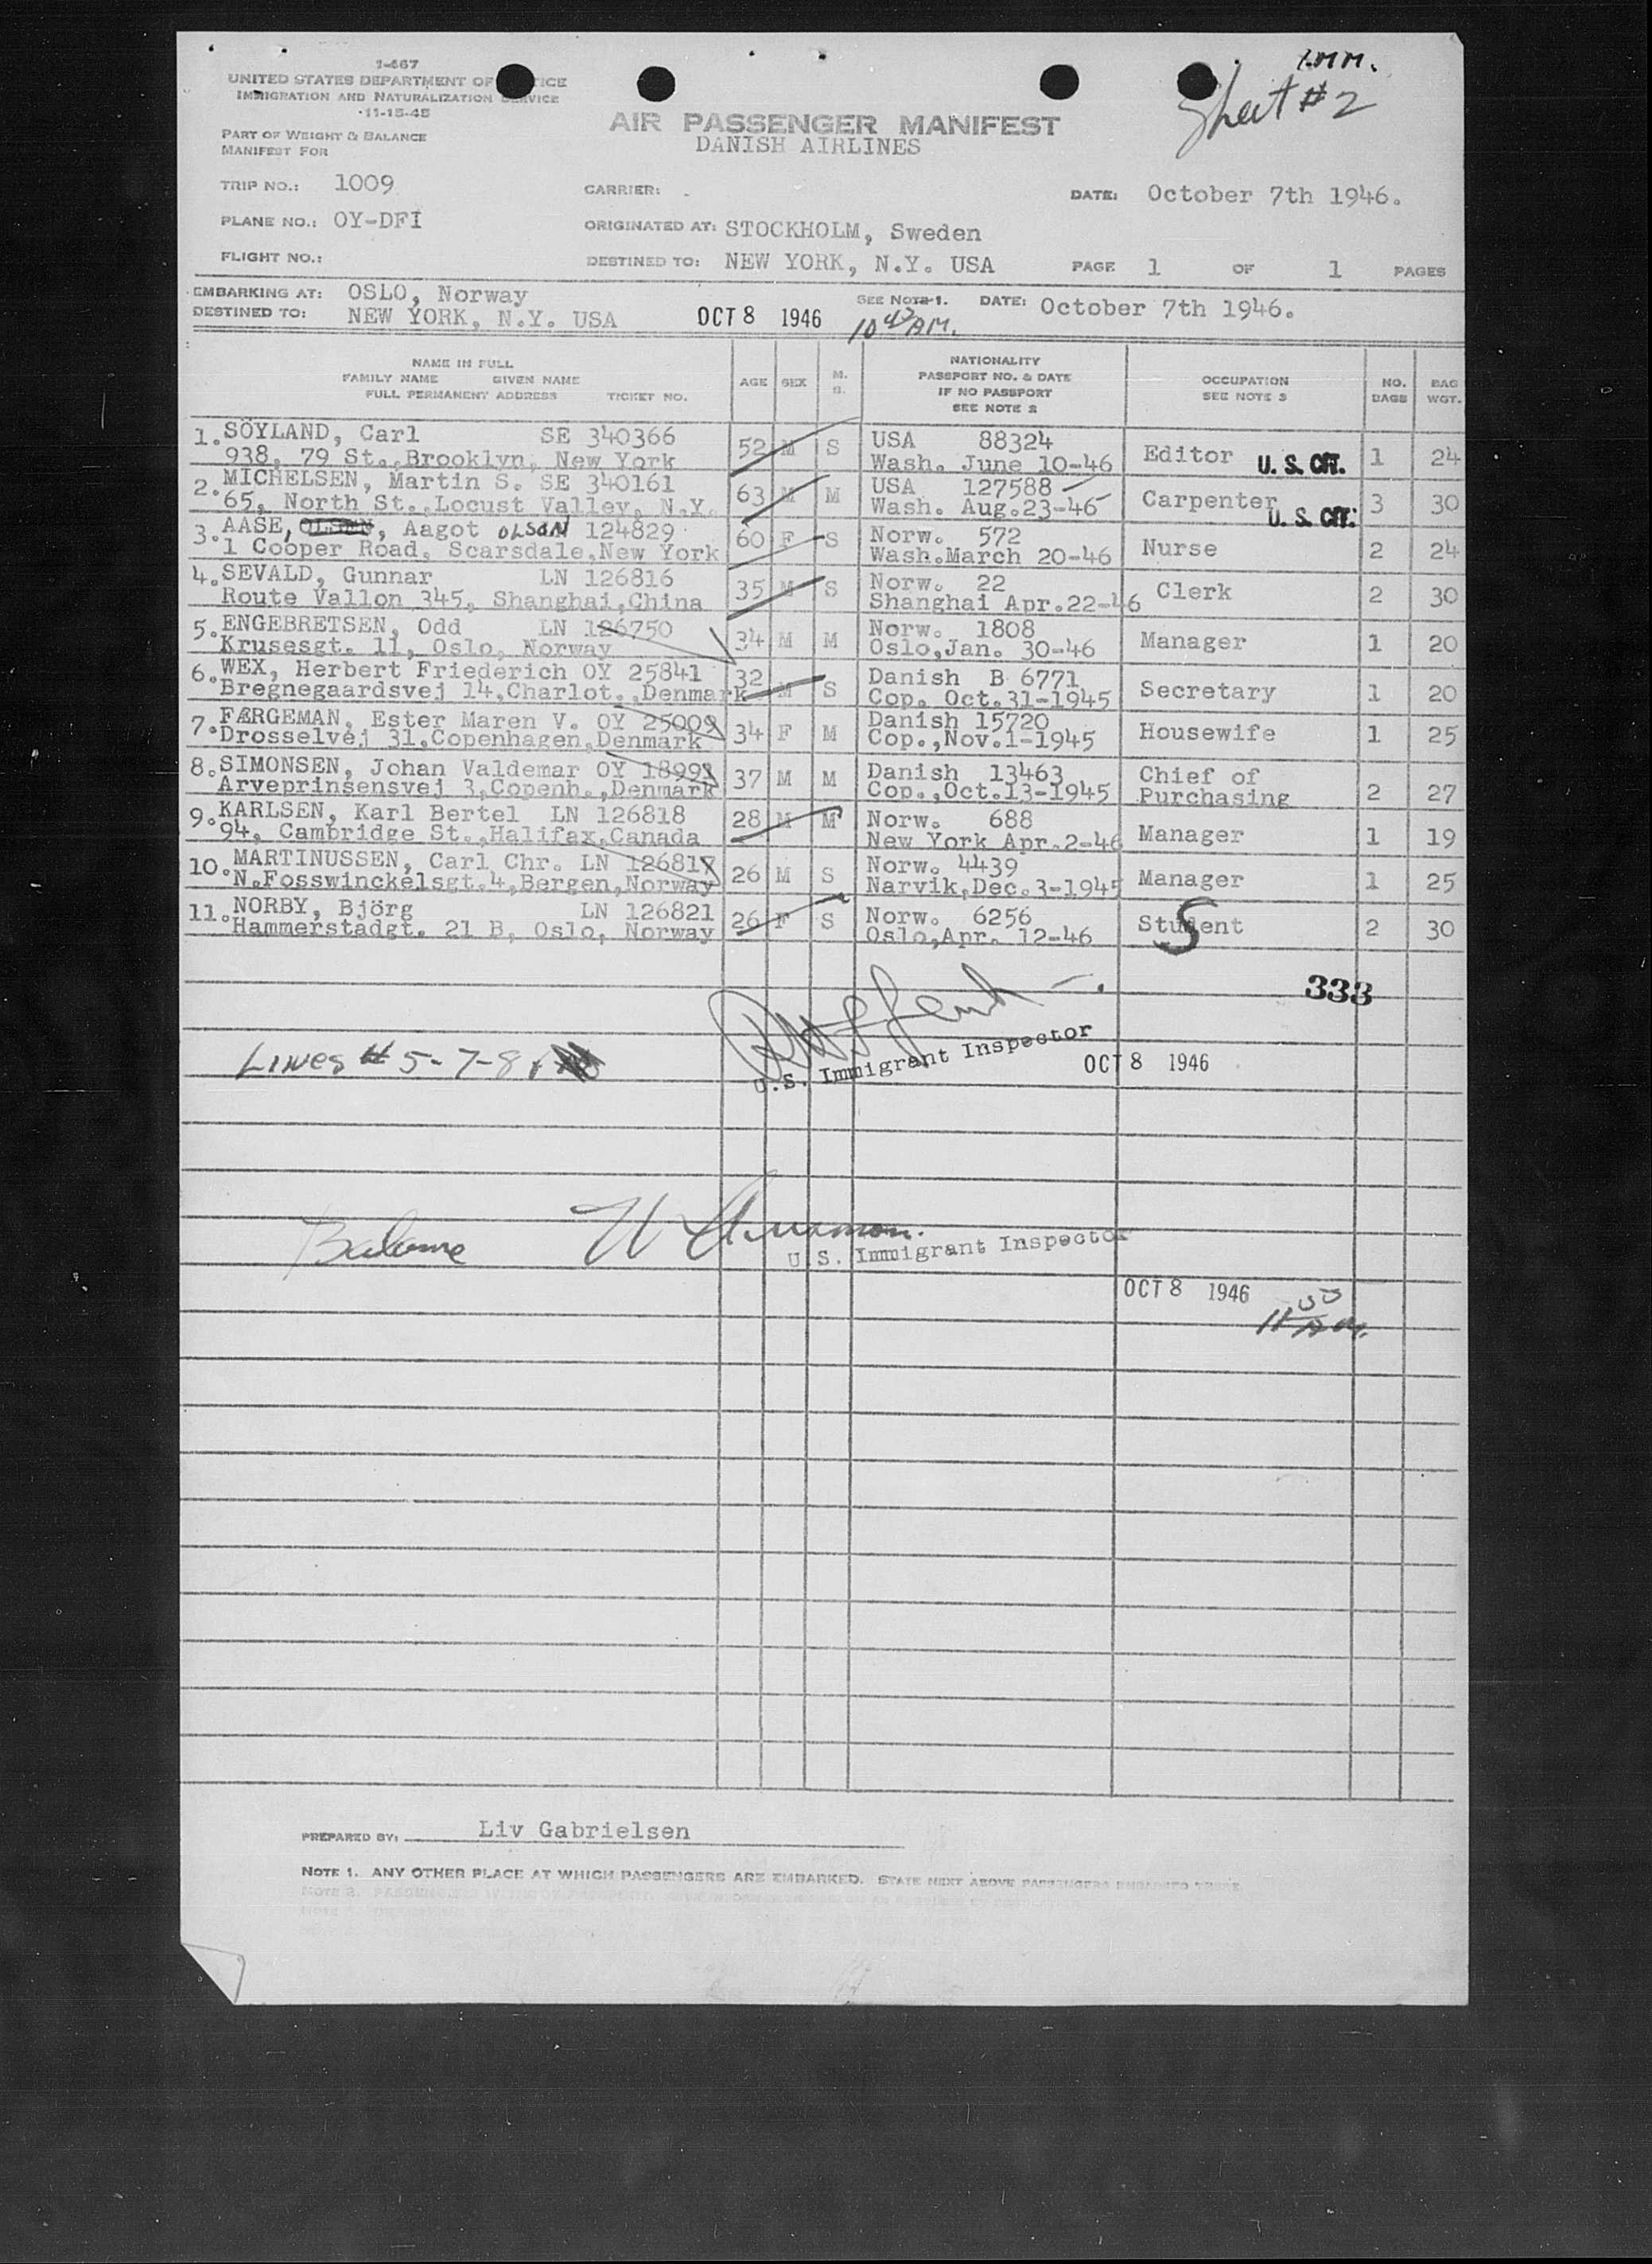 1-467
UNITED STATES DEPARTMENT OF ICE
IMMIGRATION AND NATURALIZATION SERVICE
11-15-45
PART OF WEIGHT & BALANCE
MANIFEST FOR
I.M.M.
Sheet #2
AIR PASSENGER MANIFEST
DANISH AIRLINES
TRIP NO.: 1009 CARRIER: DATE: October 7th 1946.
PLANE NO.: OY-DFI ORIGINATED AT: STOCKHOLM, Sweden
FLIGHT NO.: DESTINED TO: NEW YORK, N.Y. USA PAGE 1 OF 1 PAGES
EMBARKING AT: OSLO, Norway SEE NOTE 1. DATE: October 7th 1946.
DESTINED TO: NEW YORK, N.Y. USA OCT 8 1946 10 AM.
NAME IN FULL
FAMILY NAME GIVEN NAME
FULL PERMANENT ADDRESS TICKET NO.
AGE SEX M. S.
NATIONALITY
PASSPORT NO. & DATE
IF NO PASSPORT
SEE NOTE 2
OCCUPATION
SEE NOTE 3
NO. BAGS
BAG WGT.
1. SÖYLAND, Carl SE 340366 52 M S USA 88324 Editor U.S. CIT. 1 24
938, 79 St., Brooklyn, New York Wash. June 10-46
2. MICHELSEN, Martin S. SE 340161 63 M M USA 127588 Carpenter U.S. CIT. 3 30
65, North St., Locust Valley, N.Y. Wash. Aug.23-46
3. AASE, OLSEN, Aagot OLSEN 124829 60 F S Norw. 572 Nurse 2 24
1 Cooper Road, Scarsdale, New York Wash.March 20-46
4. SEVALD, Gunnar LN 126816 35 M S Norw. 22 Clerk 2 30
Route Vallon 345, Shanghai, China Shanghai Apr.22-46
5. ENGEBRETSEN, Odd LN 126750 34 M M Norw. 1808 Manager 1 20
Krusesgt. 11, Oslo, Norway Oslo, Jan. 30-46
6. WEX, Herbert Friederich OY 25841 32 M S Danish B 6771 Secretary 1 20
Bregnegaardsvej 14, Charlot., Denmark Cop. Oct.31-1945
7. FÆRGEMAN, Ester Maren V. OY 25009 34 F M Danish 15720 Housewife 1 25
Drosselvej 31, Copenhagen, Denmark Cop., Nov.1-1945
8. SIMONSEN, Johan Valdemar OY 18991 37 M M Danish 13463 Chief of Purchasing 2 27
Arveprinsensvej 3, Copenh., Denmark Cop., Oct.13-1945
9. KARLSEN, Karl Bertel LN 126818 28 M M Norw. 688 Manager 1 19
94, Cambridge St., Halifax, Canada New York Apr.2-46
10. MARTINUSSEN, Carl Chr. LN 126817 26 M S Norw. 4439 Manager 1 25
N.Fosswinckelsgt.4, Bergen, Norway Narvik, Dec.3-1945
11. NORBY, Björg LN 126821 26 F S Norw. 6256 Student 2 30
Hammerstadgt. 21 B, Oslo, Norway Oslo, Apr. 12-46
S
333
U.S. Immigrant Inspector
LINES # 5-7-8
OCT 8 1946
Balance
U.S. Immigrant Inspector
OCT 8 1946
11 AM.
PREPARED BY: Liv Gabrielsen
NOTE 1. ANY OTHER PLACE AT WHICH PASSENGERS ARE EMBARKED. STATE NEXT ABOVE PASSENGERS EMBARKED THERE